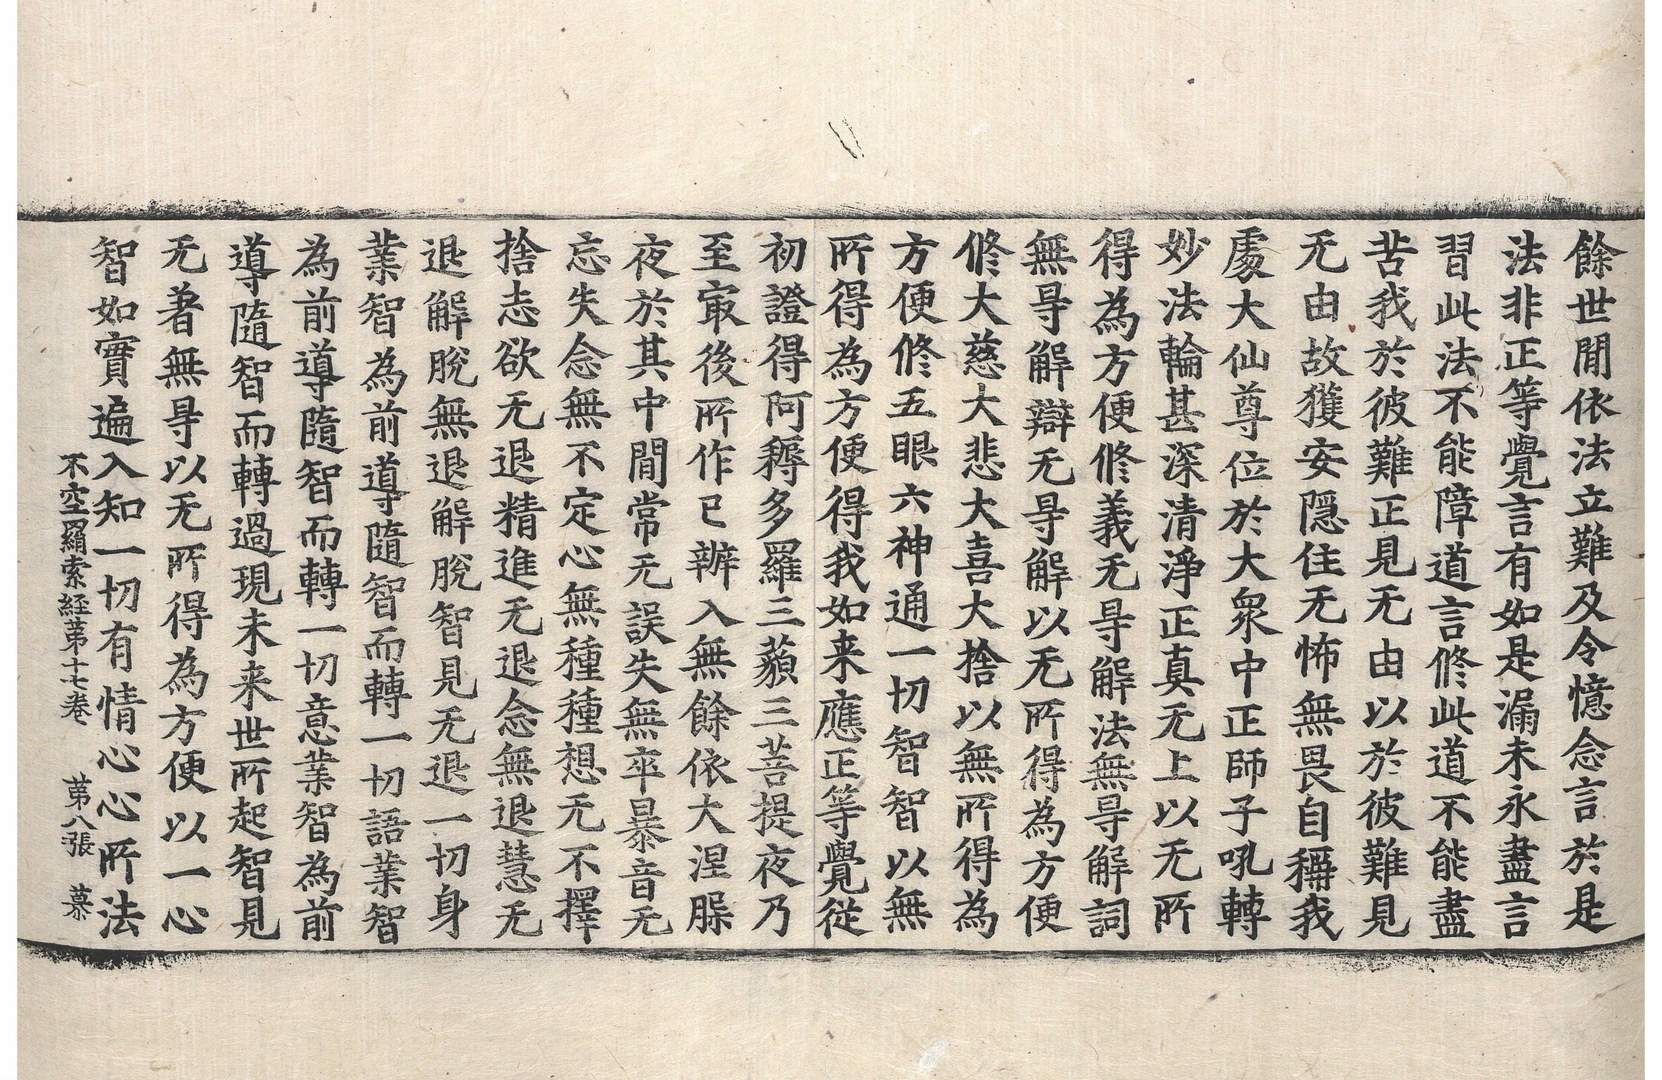 餘世閒依法立難及令憶念言於是
法非正等覺言有如是漏未永盡言
習此法不能障道言修此道不能盡
苦我於彼難正見无由以於彼難見
无由故獲安隱住无怖無畏自稱我
處大仙尊位於大衆中正師子吼轉
妙法輪甚深清淨正真无上以无所
得為方便修義无㝵解法無㝵解詞
無㝵解辯无㝵解以无所得為方便
修大慈大悲大喜大捨以無所得為
方便修五眼六神通一切智智以無
所得為方便得我如来應正等覺從
初證得阿耨多羅三藐三菩提夜乃
至㝡後所作已辦入無餘依大涅槃
夜於其中間常无誤失無卒暴音无
忘失念無不定心無種種想无不擇
捨志欲无退精進无退念無退慧无
退解脫無退解脫智見无退一切身
業智為前導隨智而轉一切語業智
為前導隨智而轉一切意業智為前
導隨智而轉過現未来世所起智見
无著無㝵以无所得為方便以一心
智如實遍入知一切有情心心所法
不空羂索経苐十七卷　苐八張　慕